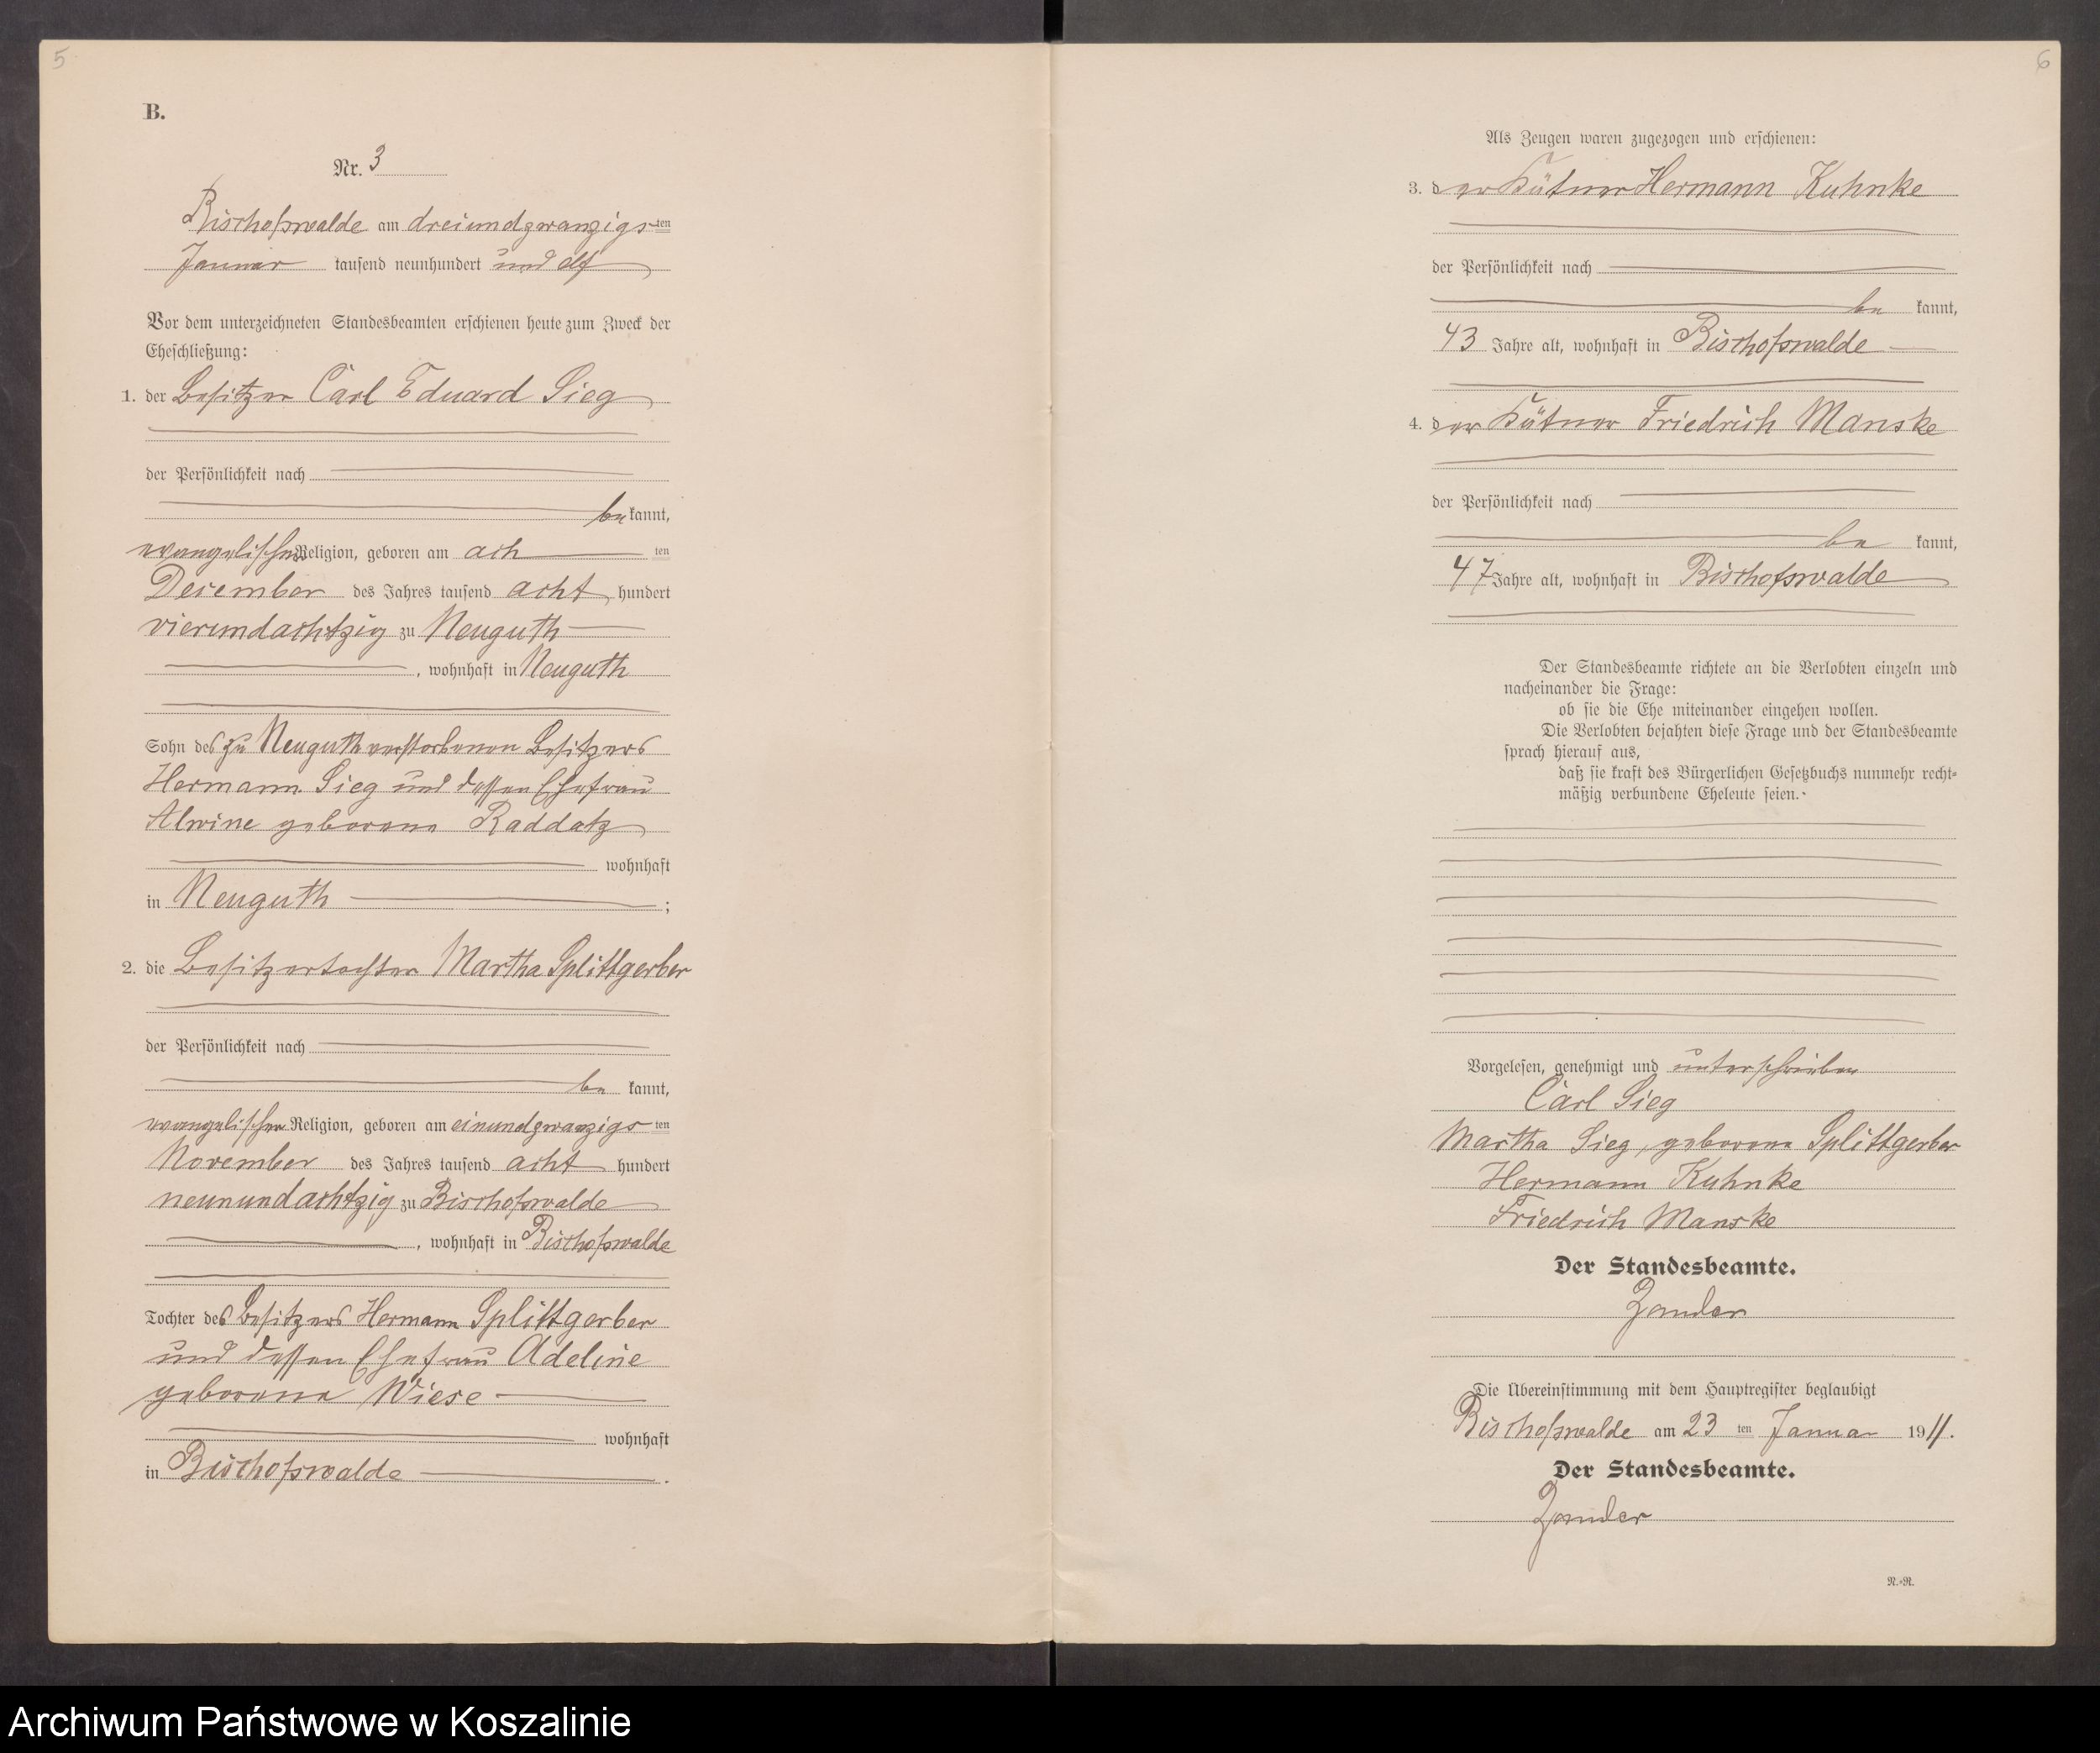 5
B.
Nr. 3
Bischofswalde am dreiundzwanzigsten
Januar tausend neunhundert und elf
Vor dem unterzeichneten Standesbeamten erschienen heute zum Zweck der
Eheschließung:
1. der Besitzer Carl Eduard Sieg
der Persönlichkeit nach
bekannt,
evangelischer Religion, geboren am ach ten
Dezember des Jahres tausend acht hundert
vierundachtzig zu Neuguth
, wohnhaft in Neuguth
Sohn des zu Neuguth verstorbenen Besitzers
Hermann Sieg und dessen Ehefrau
Alwine geborene Raddatz
wohnhaft
in Neuguth ;
2. die Besitzertochter Martha Splittgerber
der Persönlichkeit nach
be kannt,
evangelischer Religion, geboren am einundzwanzigs ten
November des Jahres tausend acht hundert
neunundachtzig zu Bischofswalde
, wohnhaft in Bischofswalde
Tochter des Besitzers Hermann Splittgerber
und dessen Ehefrau Adeline
geborene Wiese
wohnhaft
in Bischofswalde .
6
Als Zeugen waren zugezogen und erschienen:
3. der Kätner Hermann Kuhnke
der Persönlichkeit nach
be kannt,
43 Jahre alt, wohnhaft in Bischofswalde
4. der Kätner Friedrich Manske
der Persönlichkeit nach
be kannt,
47 Jahre alt, wohnhaft in Bischofswalde
Der Standesbeamte richtete an die Verlobten einzeln und
nacheinander die Frage:
ob sie die Ehe miteinander eingehen wollen.
Die Verlobten bejahten diese Frage und der Standesbeamte
sprach hierauf aus,
daß sie kraft des Bürgerlichen Gesetzbuchs nunmehr recht-
mäßig verbundene Eheleute seien.
Vorgelesen, genehmigt und unterschrieben
Carl Sieg
Martha Sieg, geborene Splittgerber
Hermann Kuhnke
Friedrich Manske
Der Standesbeamte.
Zander
Die Übereinstimmung mit dem Hauptregister beglaubigt
Bischofswalde am 23 ten Januar 1911.
Der Standesbeamte.
Zander
N.-R.
Archiwum Państwowe w Koszalinie